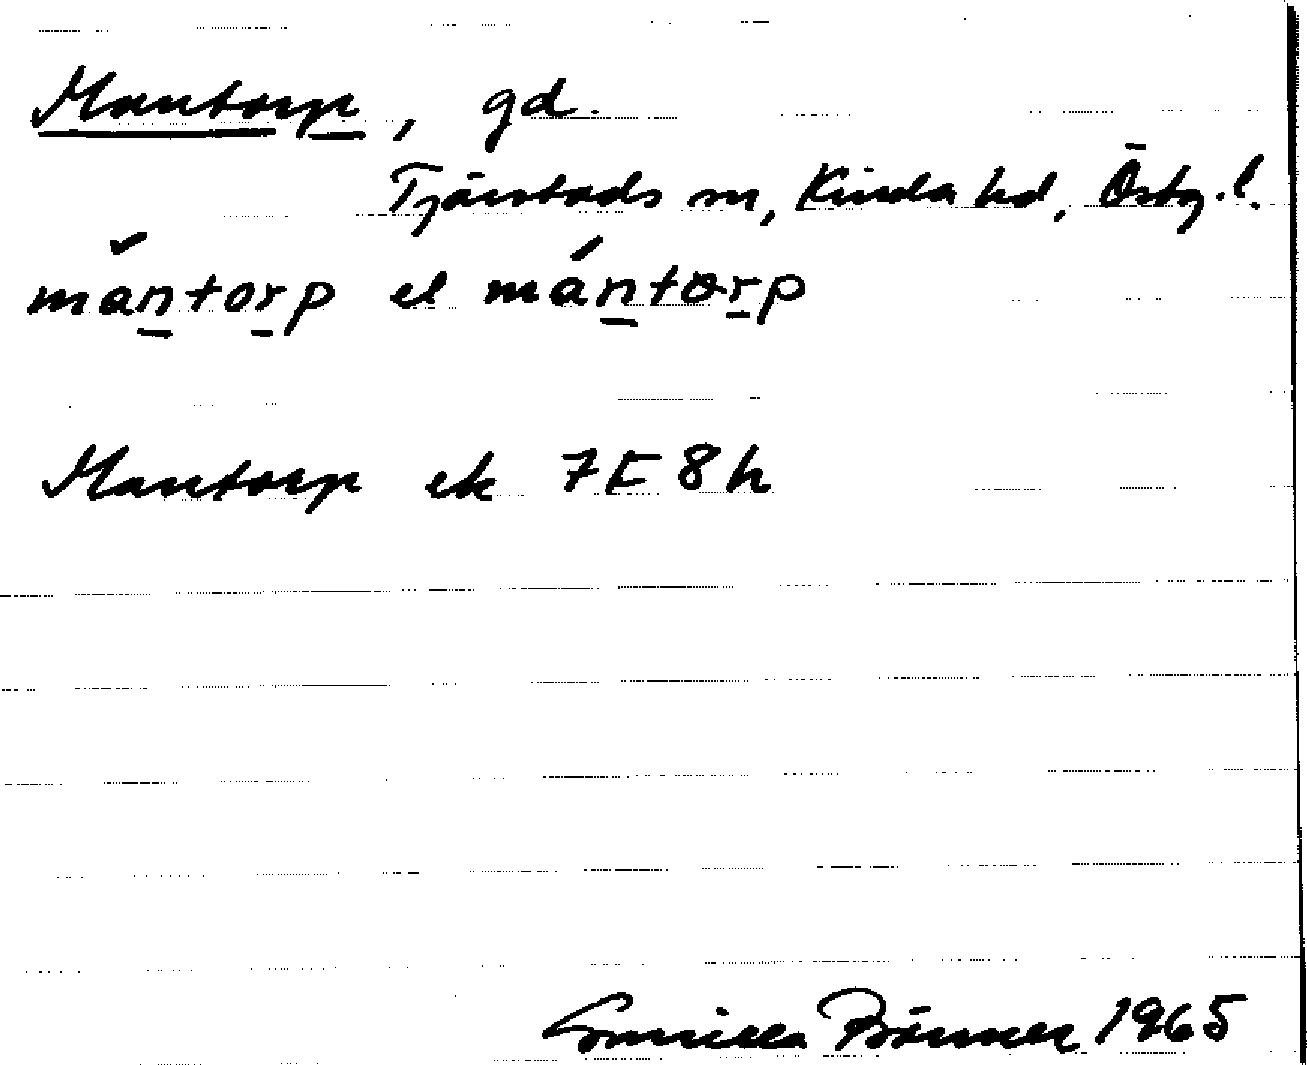 Mantorp, gd.
Tjärstads sn, Kinda hd, Östg.l.
mǎntorp el mántorp
Mantorp ek 7E8h
Gunilla Börner 1965